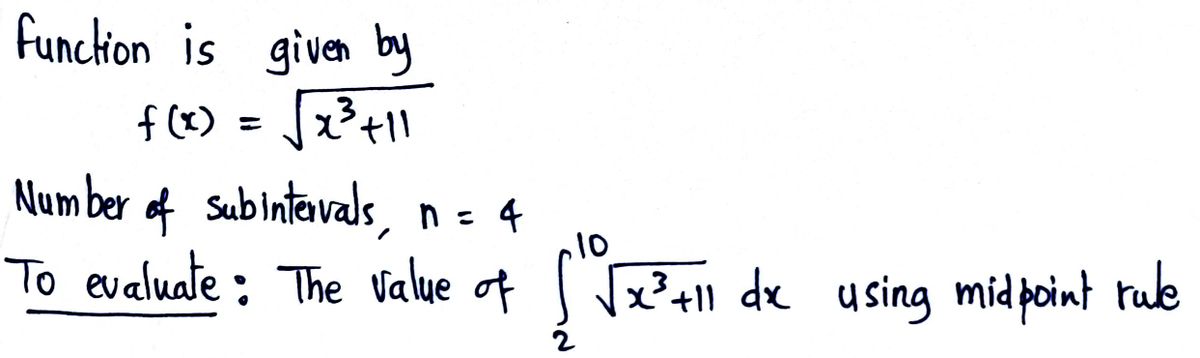 Function is given by
f(x) = √(x³+11)
Number of subintervals, n = 4
To evaluate : The value of ∫₂¹⁰ √(x³+11) dx using midpoint rule